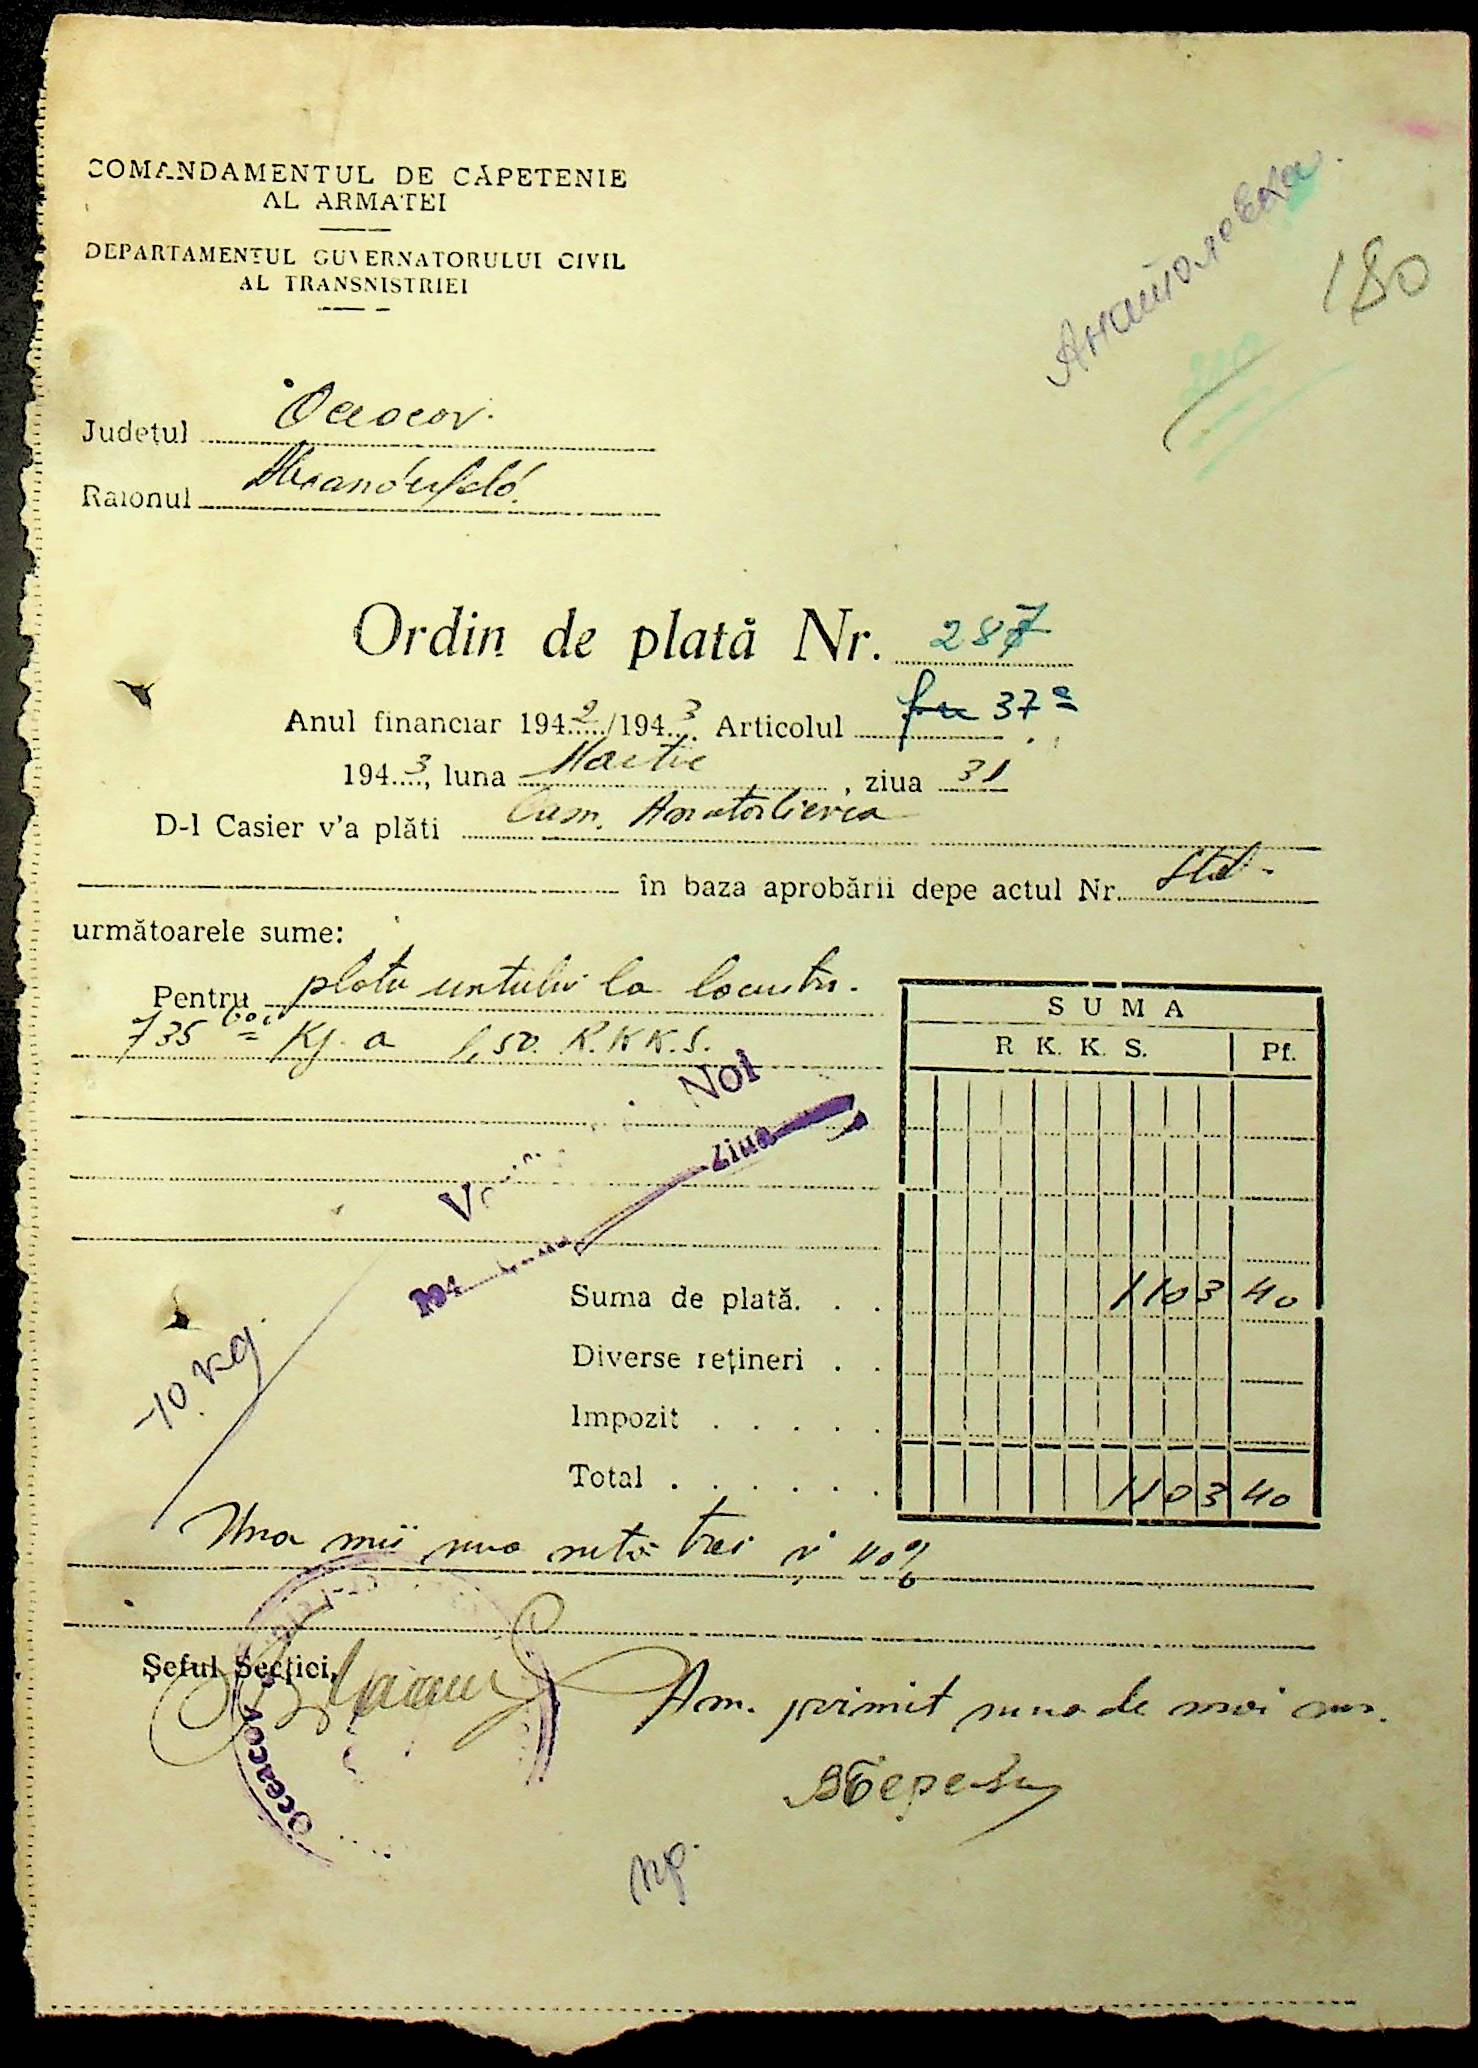 COMANDAMENTUL DE CĂPETENIE
AL ARMATEI
DEPARTAMENTUL GUVERNATORULUI CIVIL
AL TRANSNISTRIEI
Анатоловка
180
Județul
Raionul
Ordin de plată Nr. 287
Anul financiar 1942/1943. Articolul 37
1943, luna Martie, ziua 31
D-l Casier v'a plăti Com. Anatolievca
în baza aprobării depe actul Nr. Stat
următoarele sume:
Pentru plata untului la locuitori.
735 600 Kg. a 1,50. R.K.K.S.
SUMA
R K. K. S. Pf.
NOI
194 Ziua
Suma de plată. . . 1103 40
Diverse rețineri . .
Impozit . . . . .
Total . . . . . . 1103 40
-10 кg.
Una mii una sută trei și 40%
Șeful Secției,
Oceacov
Am. primit suma de mai sus.